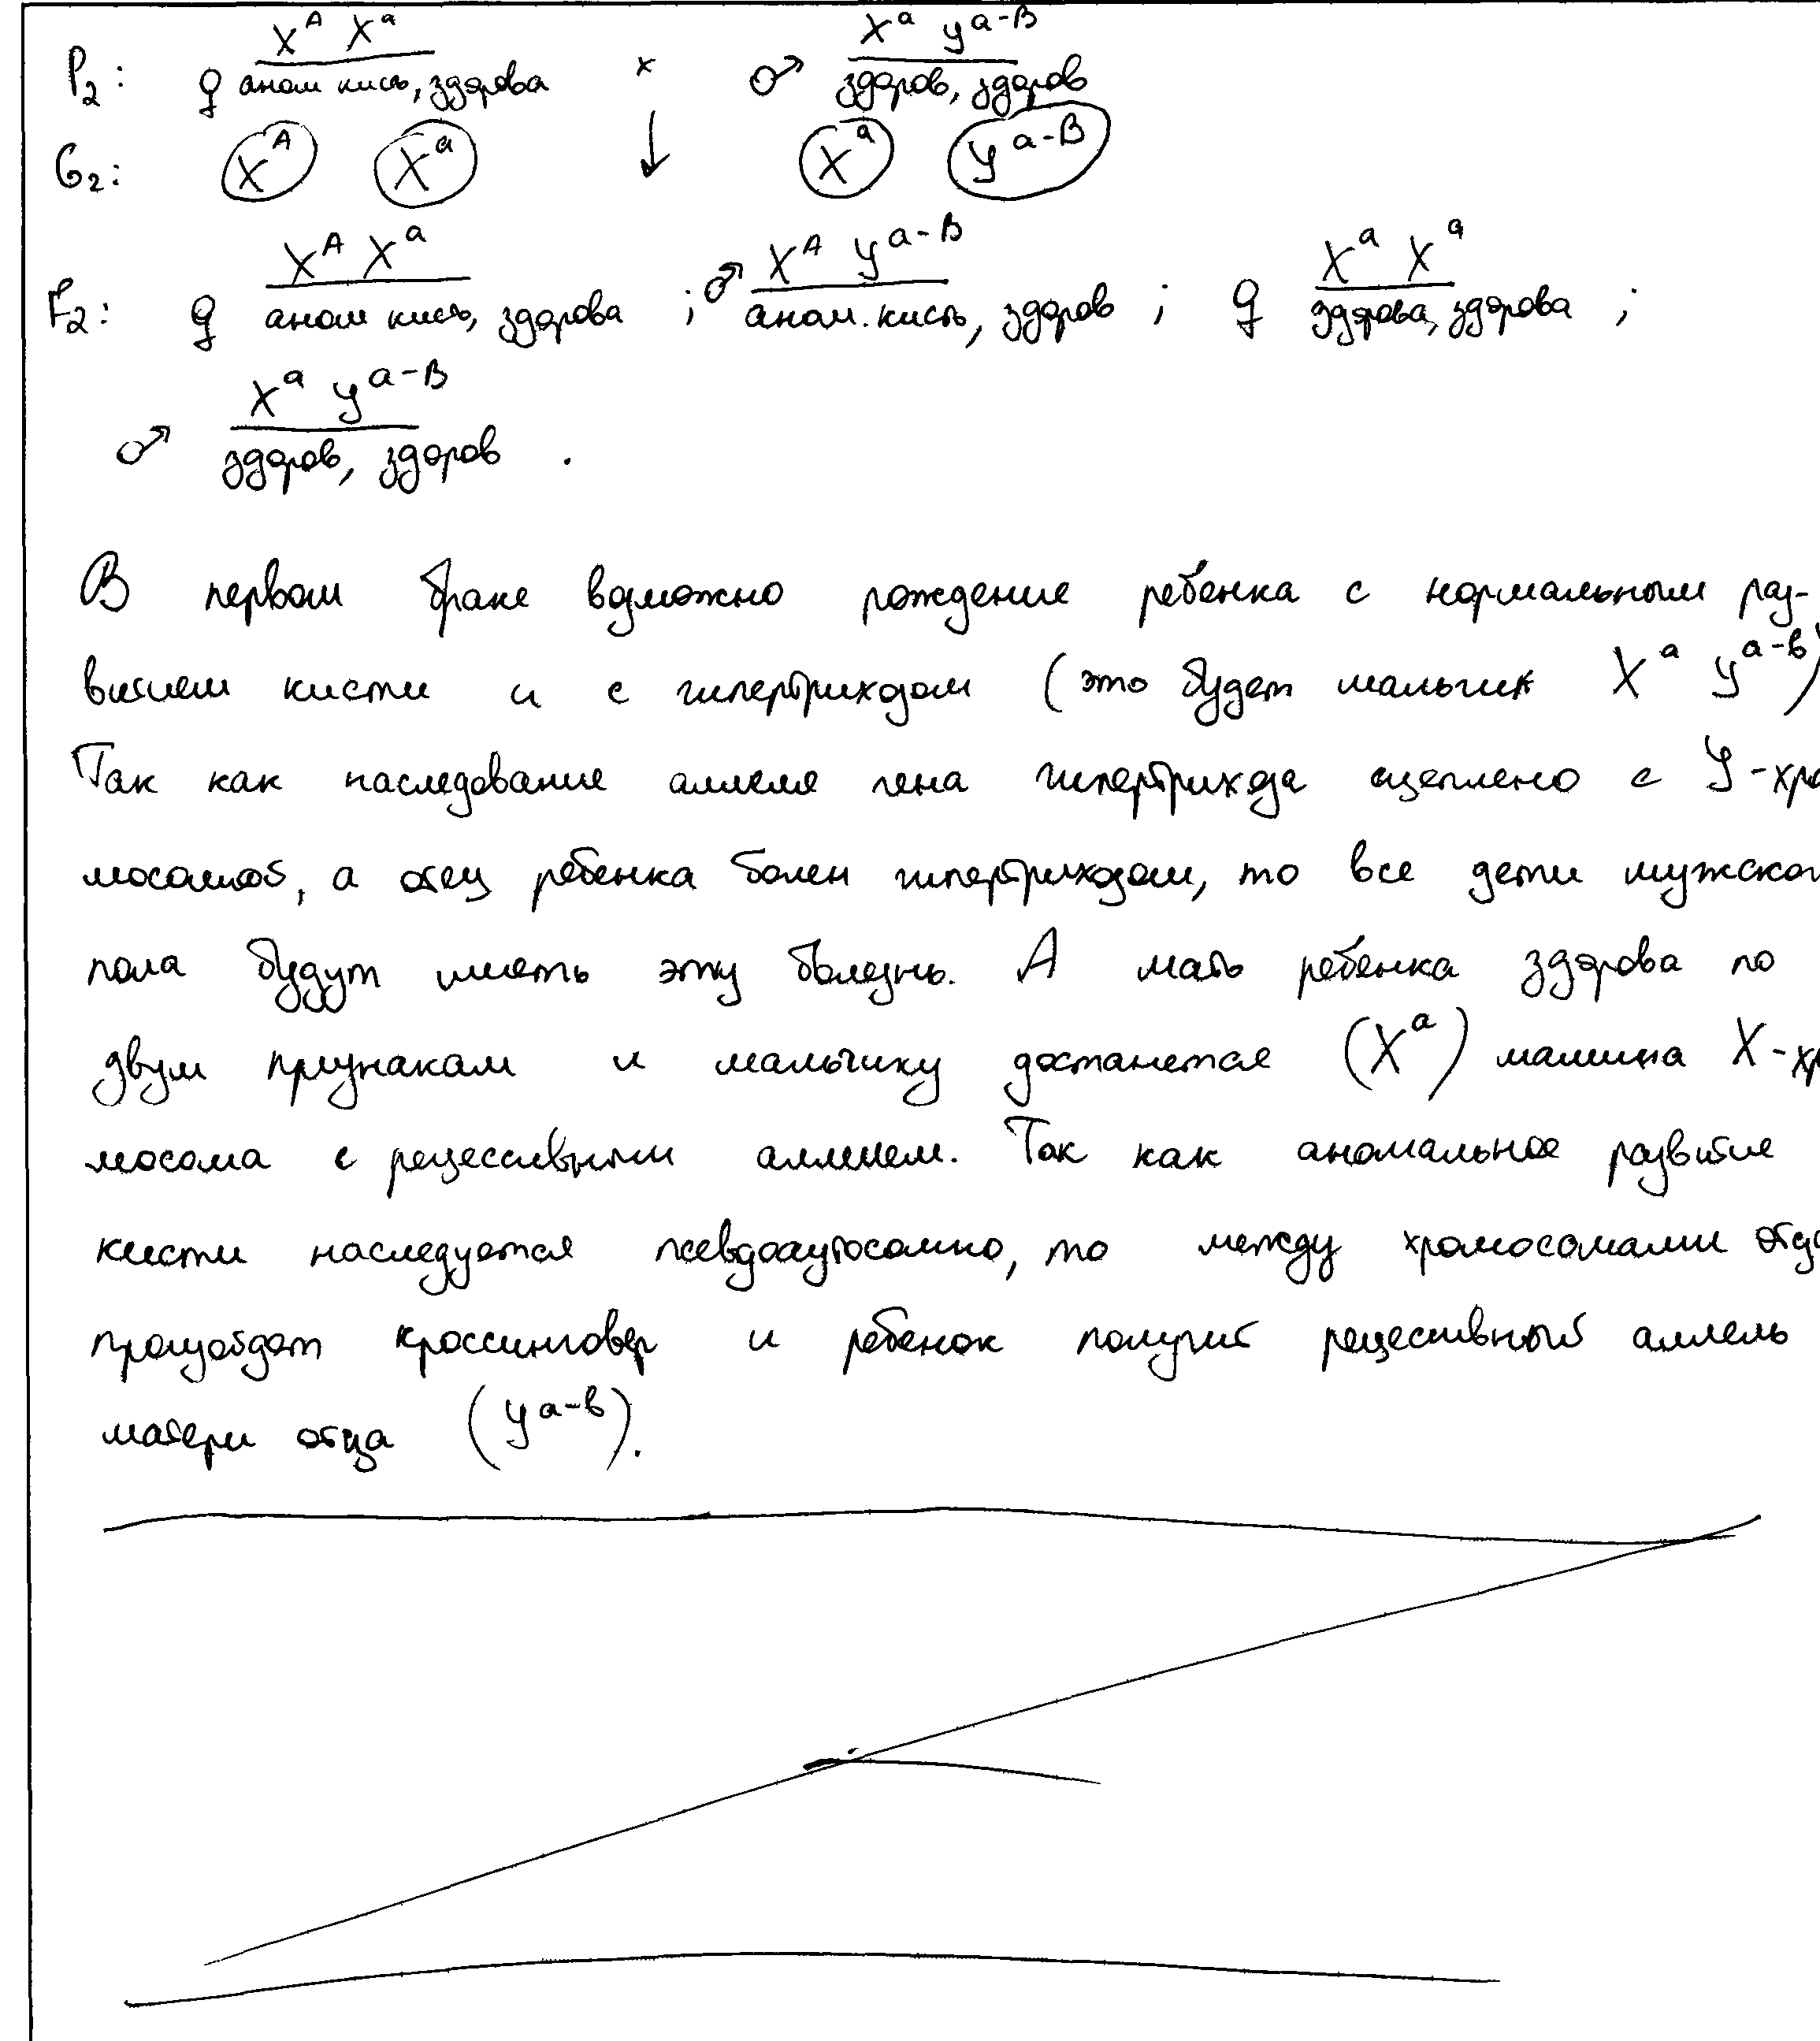 P₂: ♀ X^A X^a аном кисть, здорова × ♂ X^a y^a-B здоров, здоров
G₂: X^A X^a ↓ X^a y^a-B
F₂: ♀ X^A X^a аном кисть, здорова ; ♂ X^A y^a-B аном. кисть, здоров ; ♀ X^a X^a здорова, здорова ;
♂ X^a y^a-B здоров, здоров .
В первом браке возможно рождение ребенка с нормальным раз-
витием кисти и с гипертрихозом (это будет мальчик X^a y^a-b)
Так как наследование аллеля гена гипертрихоза сцеплено с У-хро
мосомой, а отец ребенка болен гипертрихозом, то все дети мужског
пола будут иметь эту болезнь. А мать ребенка здорова по
двум признакам и мальчику достанется (X^a) мамина X-хр
мосома с рецессивным аллелем. Так как аномальное развитие
кисти наследуется псевдоаутосомно, то между хромосомами отца
произойдет кроссинговер и ребенок получит рецессивный аллель
матери отца (y^a-b).